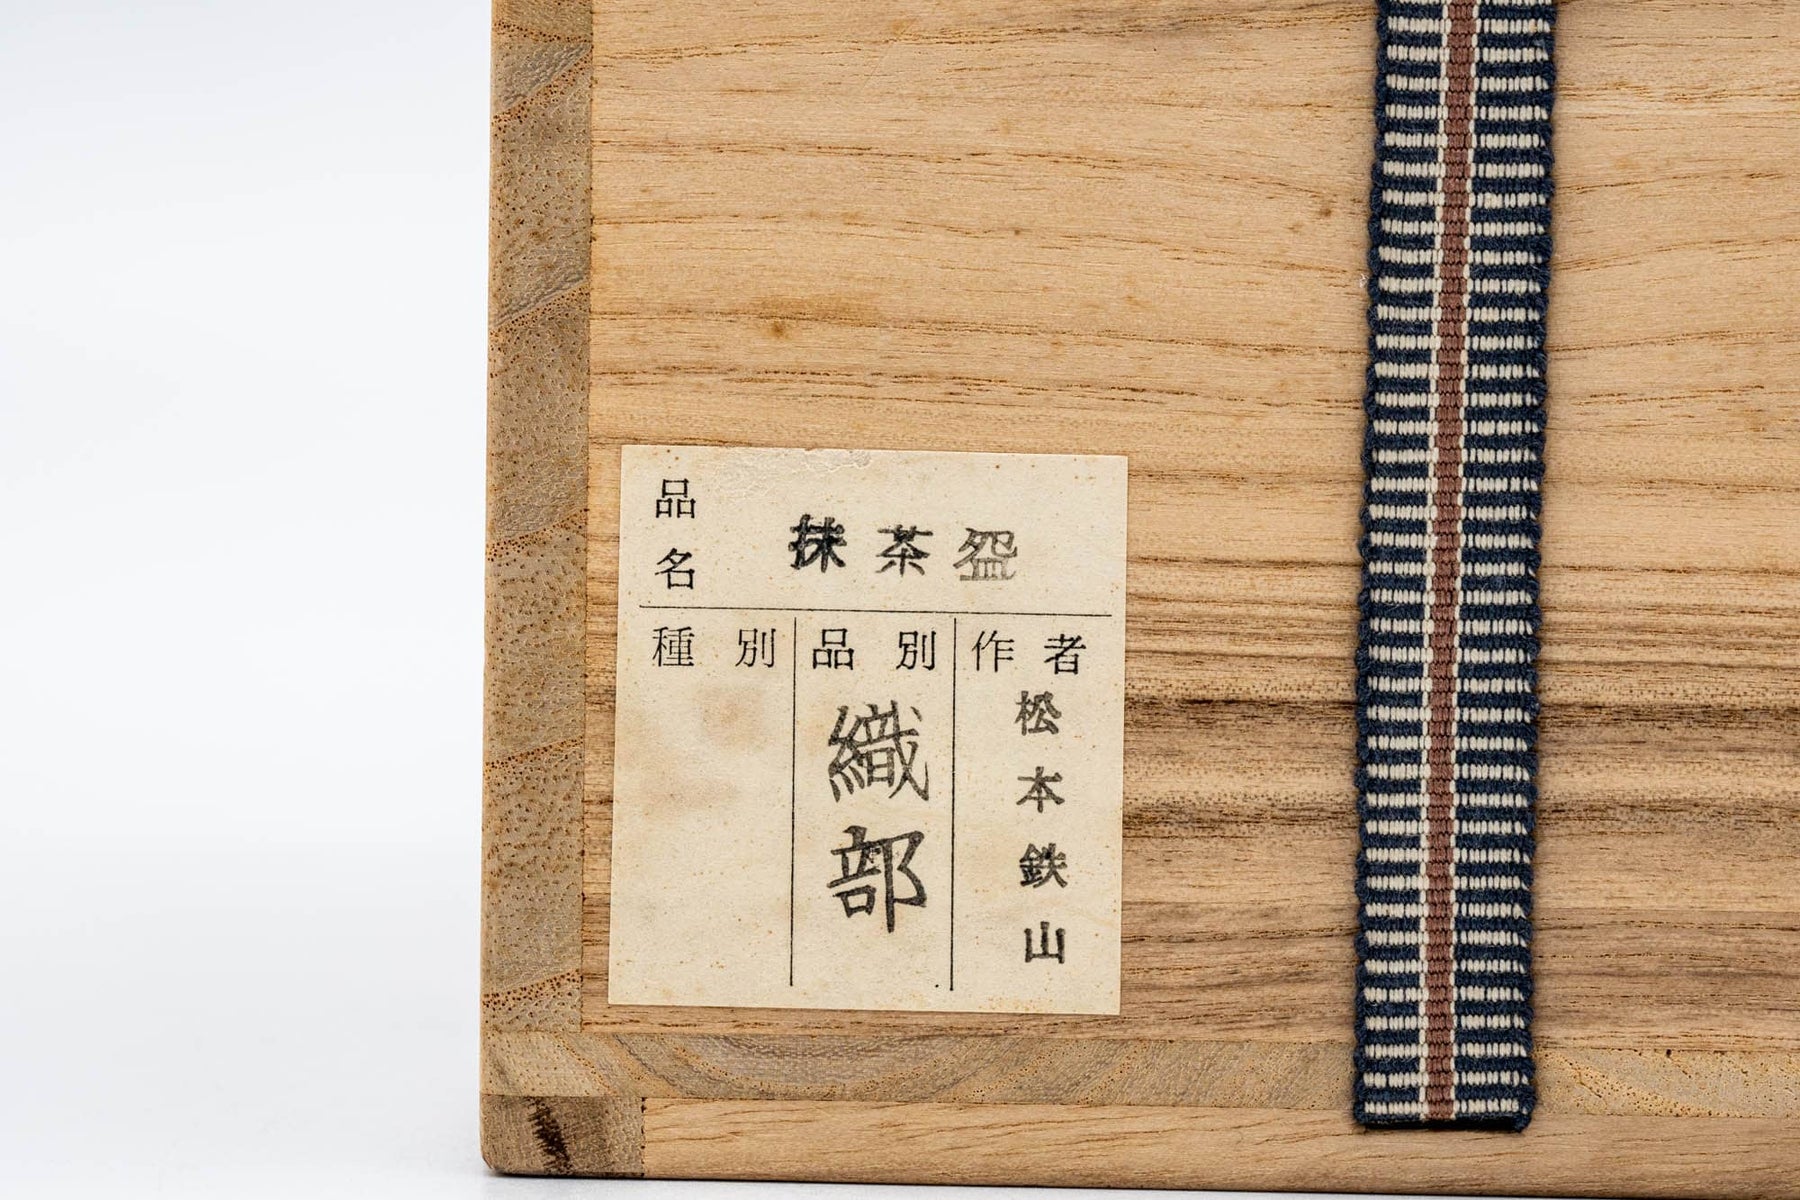 品名 抹茶盌
種別
品別
織部
作者
松本鉄山